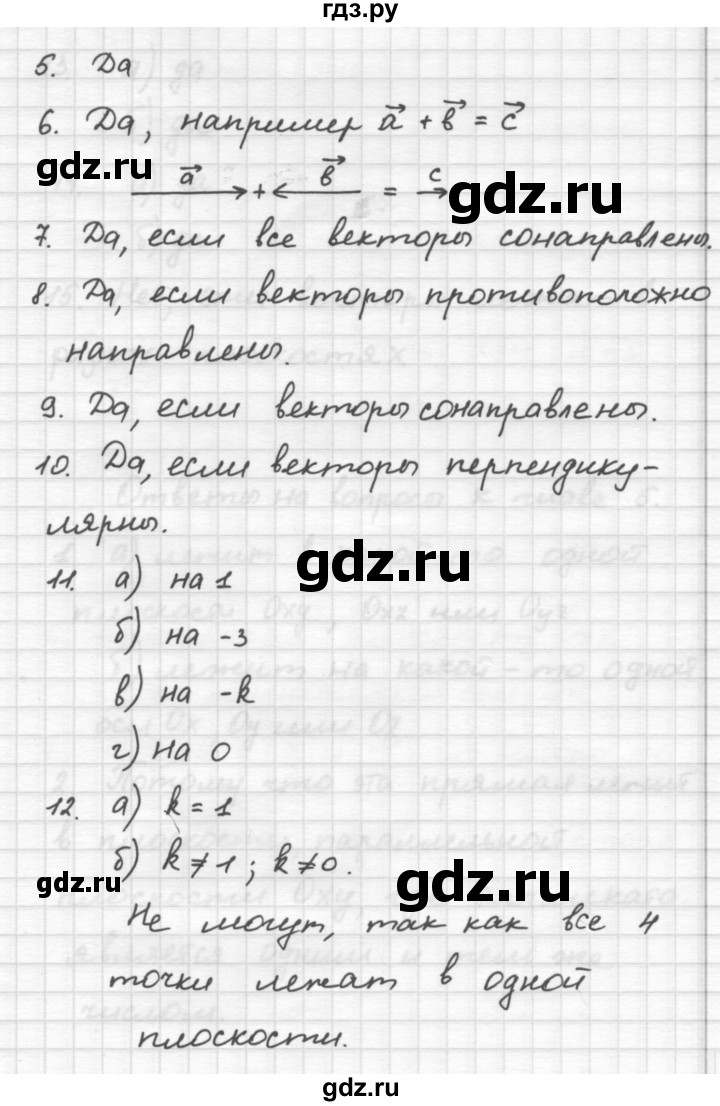 гдз.ру
5. Да
6. Да, например a⃗ + b⃗ = c⃗
gdz.ru
a⃗ + b⃗ = c
gdz.ru
7. Да, если все векторы сонаправлены.
8. Да, если векторы противоположно
направлены.
9. Да, если векторы сонаправлены.
10. Да, если векторы перпендику-
лярны.
gdz.ru
11. а) на 1
б) на -3
в) на -k
г) на 0
12. а) k = 1
б) k ≠ 1 ; k ≠ 0.
gdz.ru
gdz.ru
Не могут, так как все 4
точки лежат в одной
плоскости.
gdz.ru